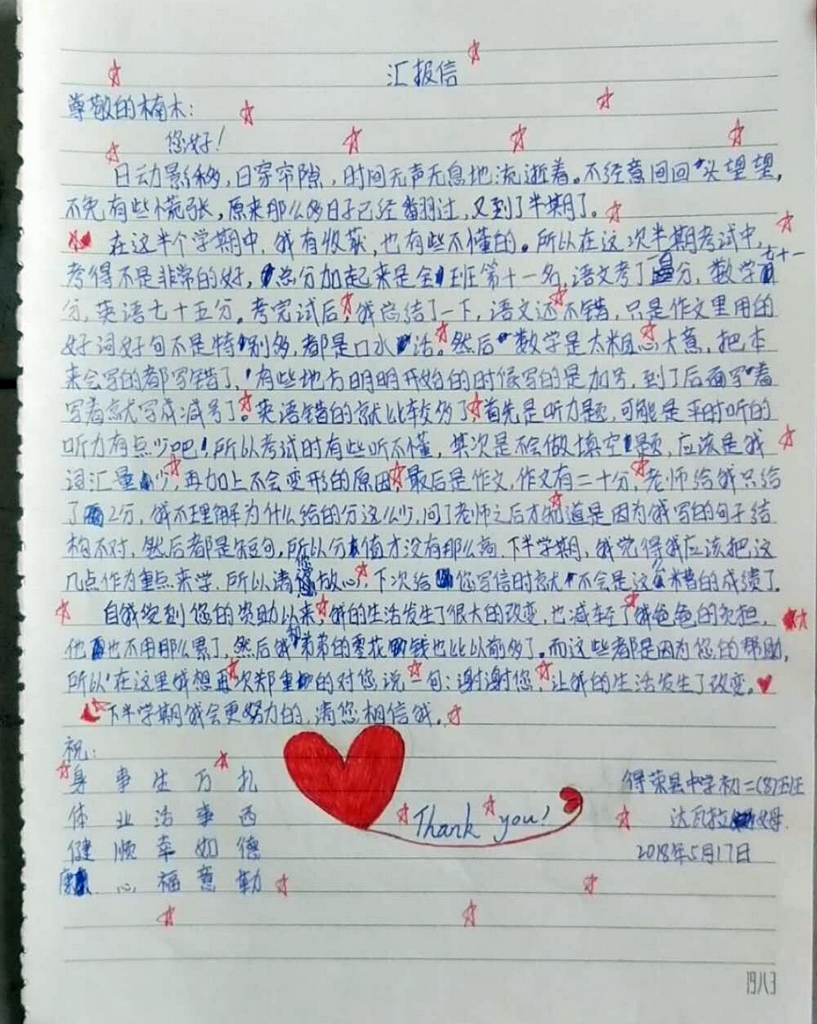 汇报信
尊敬的楠木:
您好!
日动影移,日穿帘隙,时间无声无息地流逝着。不经意间回头望望,
不免有些慌张,原来那么多日子已经翻过,又到了半期了。
在这半个学期中,我有收获,也有些不懂的。所以在这次半期考试中,
考得不是非常的好,总分加起来是全班第十一名,语文考了分,数学七十一
分,英语七十五分。考完试后,我总结了一下,语文还不错,只是作文里用的
好词好句不是特别多,都是口水话。然后数学是太粗心大意,把本
来会写的都写错了,有些地方明明开始的时候写的是加号,到了后面写着
写着就写成减号了。英语错的就比较多了,首先是听力题,可能是平时听的
听力有点少吧!所以考试时有些听不懂,其次是不会做填空题,应该是我
词汇量少,再加上不会变形的原因,最后是作文,作文有二十分,老师给我只给
了2分,我不理解为什么给的分这么少,问了老师之后才知道是因为我写的句子结
构不对,然后都是短句,所以分值才没有那么高,下半学期,我觉得我应该把这
几点作为重点来学,所以请您放心,下次给您写信时就不会是这么糟的成绩了。
自我受到您的资助以来,我的生活发生了很大的改变,也减轻了我爸爸的负担,
他也不用那么累了,然后我和弟弟的零花钱也比以前多了。而这些都是因为您的帮助,
所以在这里我想再次郑重的对您说一句:谢谢您,让我的生活发生了改变。
下半学期我会更努力的,请您相信我。
祝:
身 事 生 万 扎
体 业 活 事 西
健 顺 幸 如 德
康 心 福 意 勒
Thank you!
得荣县中学初二(8)班
达瓦拉姆
2018年5月17日